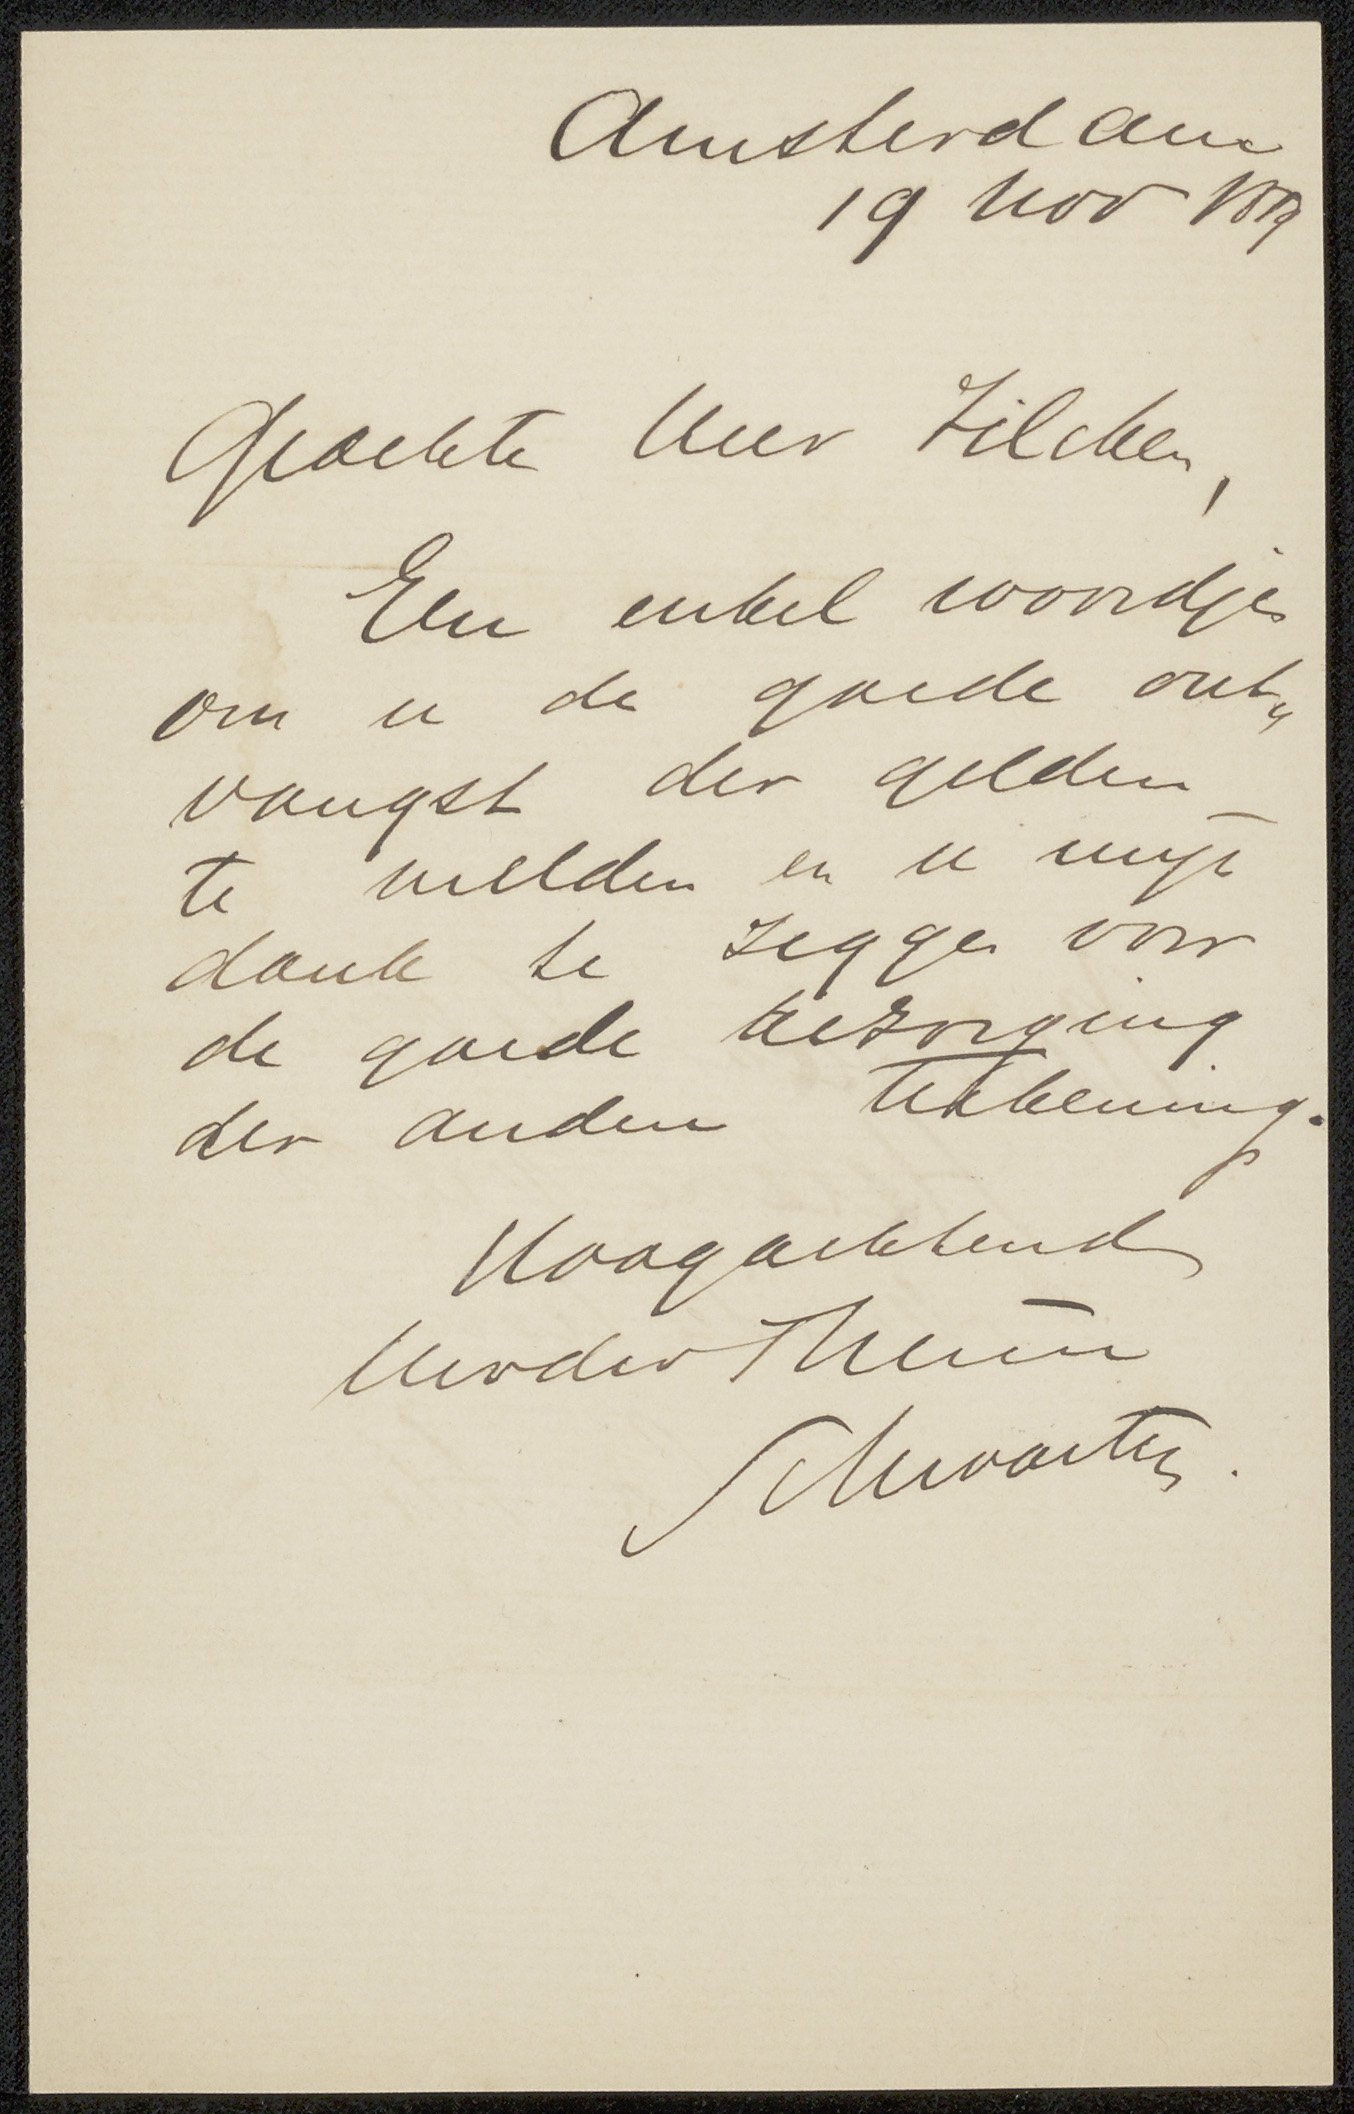 Amsterdam
19 Nov
Geachte Heer Zilcken,
Een enkel woordje
om u de goede ont„
vangst der gelden
te melden en u mijn
dank te zeggen voor
de goede bezorging
der andere teekening.
Hoogachtend
Schwartze.